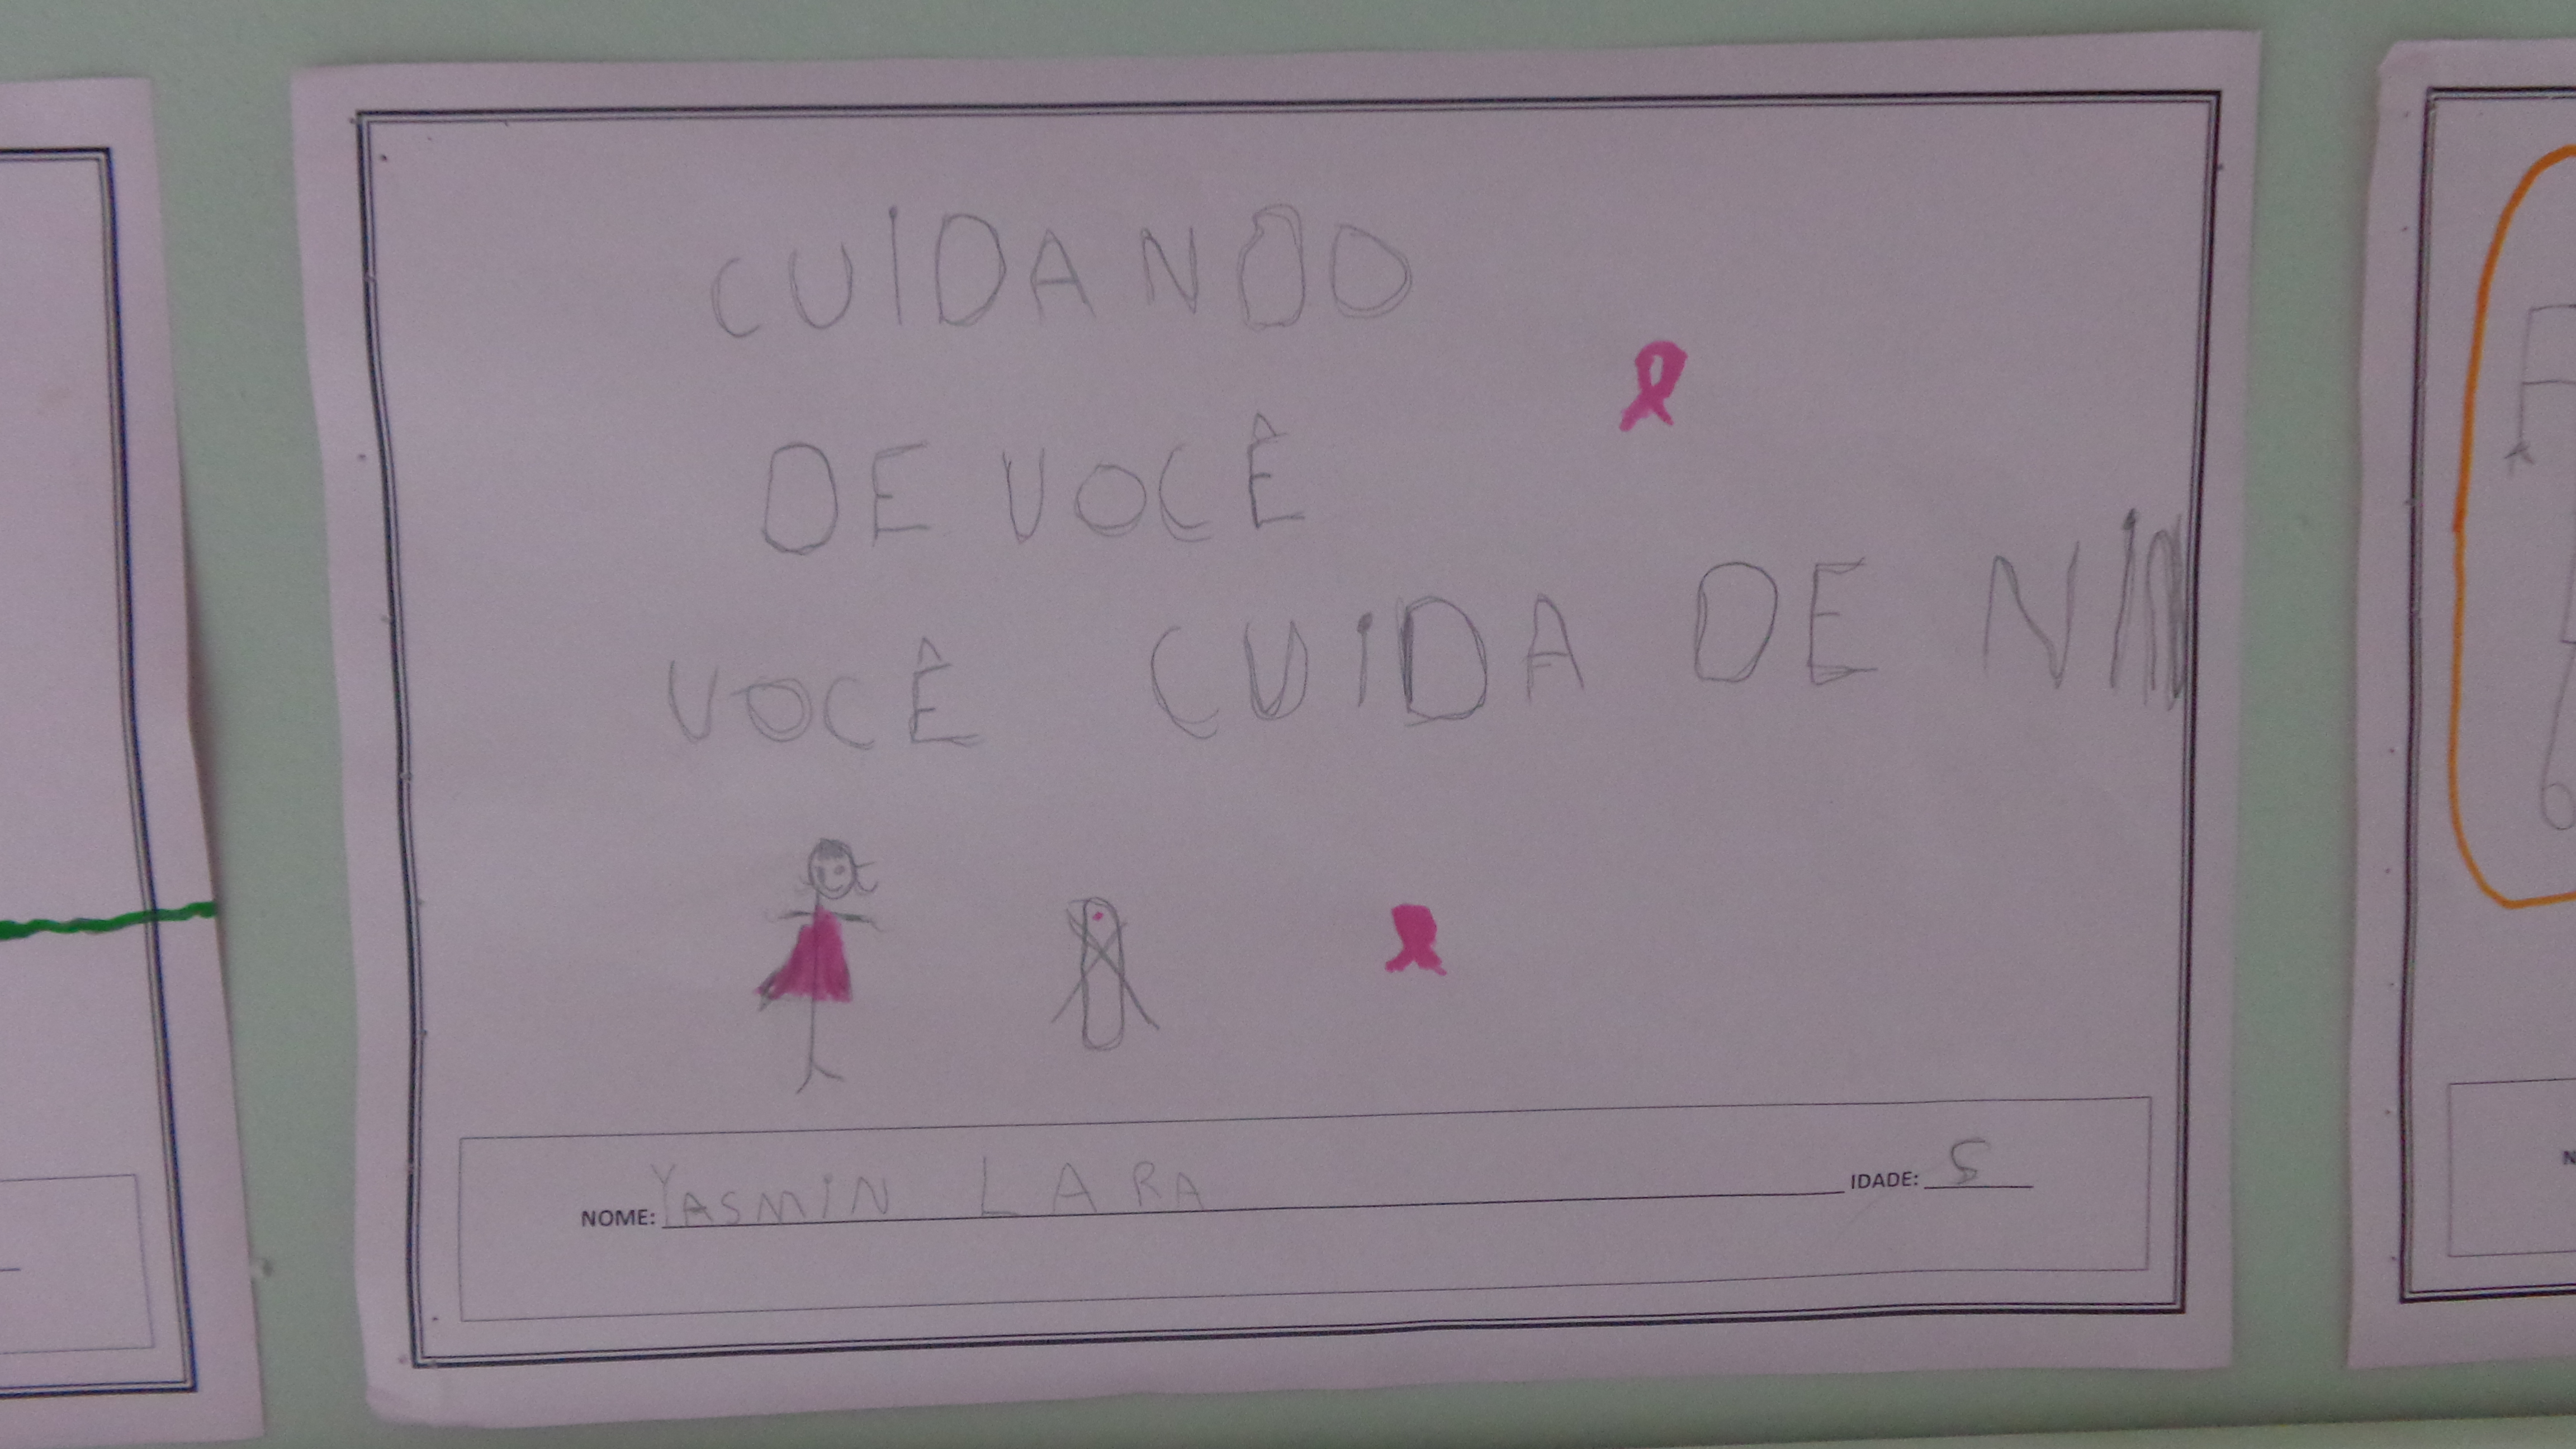 CUIDANDO
DE VOCÊ
VOCÊ CUIDA DE NIM
NOME: YASMIN LARA IDADE: